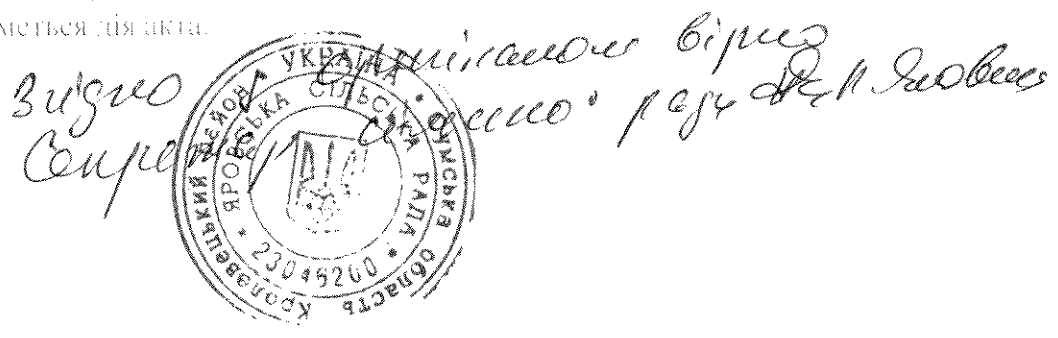 меться дія акта.
Згідно з оригіналом вірно
Секретар сільської ради
УКРАЇНА * Сумська область Кролевецький район *
ЯРОСЬКА СІЛЬСЬКА РАДА
* 23045200 *